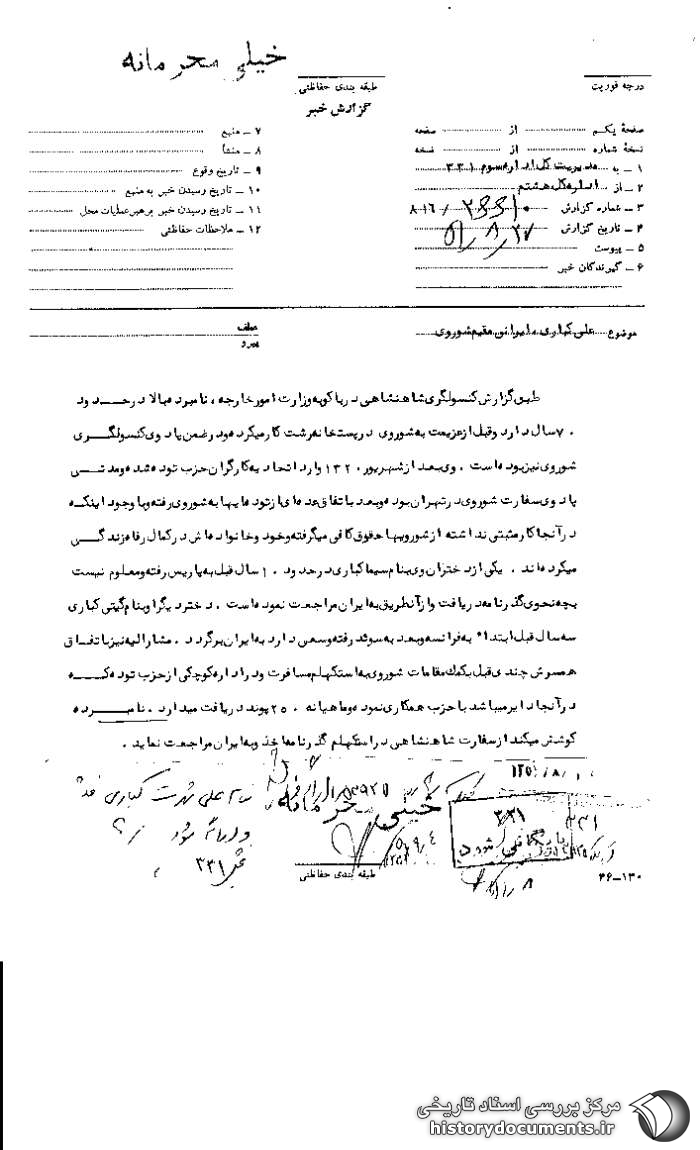 خیلی محرمانه
درجه فوریت
طبقه بندی حفاظتی
گزارش خبر
صفحهٔ یکم ........ از ........ صفحه
نسخهٔ شماره ........ از ........ نسخه
۱ ــ به مدیریت کل اداره سوم ۳۳۱
۲ ــ از اداره کل هشتم
۳ ــ شماره گزارش ۸۱۶/
۴ ــ تاریخ گزارش ۵۱/۸/۲۷
۵ ــ پیوست
۶ ــ گیرندگان خبر
۷ ــ منبع
۸ ــ منشأ
۹ ــ تاریخ وقوع
۱۰ ــ تاریخ رسیدن خبر به منبع
۱۱ ــ تاریخ رسیدن خبر برهبر عملیات محل
۱۲ ــ ملاحظات حفاظتی
موضوع علی کباری ـ ایرانی مقیم شوروی
عطف
پیرو
طبق گزارش کنسولگری شاهنشاهی در باکو به وزارت امور خارجه ، نامبرده بالا در حدود
۷۰ سال دارد و قبل از عزیمت به شوروی در پستخانه رشت کار میکرده و در ضمن پادوی کنسولگری
شوروی نیز بوده است . وی بعد از شهریور ۱۳۲۰ وارد اتحادیه کارگران حزب توده شده و مدتی
پادوی سفارت شوروی در تهران بوده و بعد باتفاق عده ای از توده ایها به شوروی رفته و با وجود اینکه
در آنجا کار مثبتی نداشته از شورویها حقوق کافی میگرفته و خود و خانواده اش در کمال رفاه زندگی
میکرده اند . یکی از دختران وی بنام سیما کباری در حدود ۱۰ سال قبل به پاریس رفته و معلوم نیست
بچه نحوی گذرنامه دریافت و از آنطریق به ایران مراجعت نموده است . دختر دیگر او بنام گیتی کباری
سه سال قبل ابتداء به فرانسه و بعد به سوئد رفته و سعی دارد به ایران برگردد . مشارالیه نیز باتفاق
همسرش چندی قبل بکمک مقامات شوروی به استکهلم مسافرت و در اداره کوچکی از حزب توده که
در آنجا دایر میباشد با حزب همکاری نموده و ماهیانه ۲۵۰ پوند دریافت میدارد . نامبرده
کوشش میکند از سفارت شاهنشاهی در استکهلم گذرنامه اخذ و به ایران مراجعت نماید .
نام علی شهرت کباری
خیلی محرمانه
۳۳۱
بایگانی شود
۳۳۱
طبقه بندی حفاظتی
۳۶ــ۱۳۰
مرکز بررسی اسناد تاریخی
historydocuments.ir